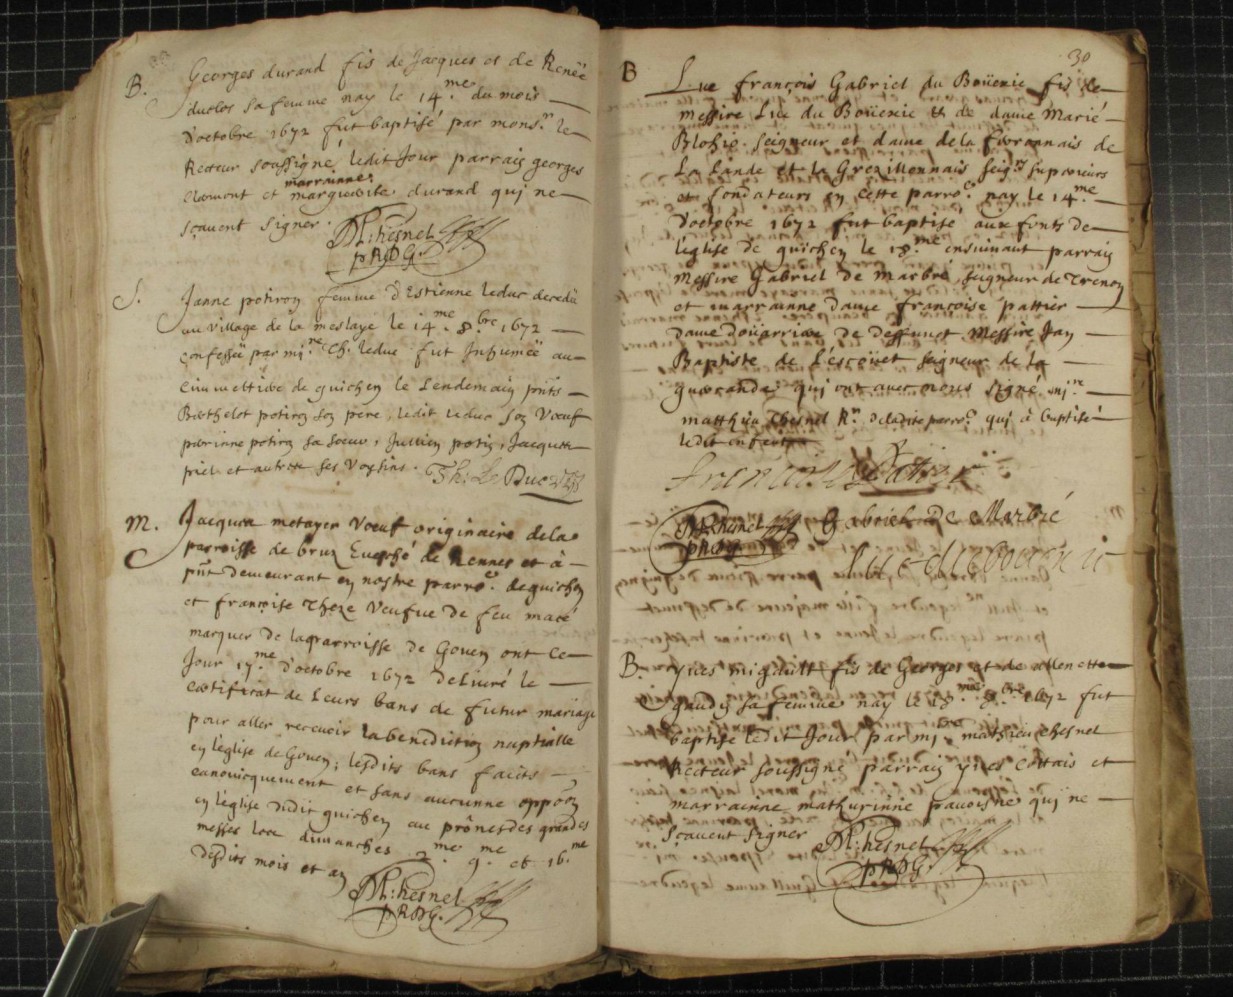 B.
Georges durand fis de Jacques et de Renée
duclos sa femme nay le 14.me du mois
d'octobre 1672 fut baptisé par mons.r le
Recteur soussigné ledit Jour parrain georges
clermont et marrainne marguerite durand qui ne
sçavent signer
M: Chesnel
p R D G.
S.
Janne potiron femme d'Estienne leduc decedée
au village de la meslaye le 14.me 8.bre 1672
confessée par mi.re Ch. leduc fut Inhumée au
cimmettiere de guichen le Lendemain pnts
Barthelot potiron son pere, ledit leduc son Voeuf
perinne potiron sa soeur, Jullien potin, Jacques
piel et autres ses Voysins. Ch: Le Duc
M.
Jacques metayer Voeuf originaire de la
parroisse de bruz Evesché de Rennes et à
pnt demeurant en nostre parro.e de guichen
et françoise Theze Veufve de feu macé
marquer de la parroisse de Goven ont ce
Jour 17.me d'octobre 1672 delivré le
certificat de Leurs bans de futur mariage
pour aller recevoir la benediction nuptialle
en l'eglise de Goven; lesdits bans faicts
canonicquement et sans aucunne oppoon
en l'eglise dudit guichen au prônes des grandes
messes les dimanches 2.me 9.me et 16.me
desdits mois et an
M: Chesnel
p R D G.
30
B
Luc françois Gabriel du Boüexic fis de
messire Luc du Boüexic et de dame Marie
Blohio seigneur et dame de la ferronnais de
La Lande et la Grezillonnais seig.rs superieurs
et fondateurs en cette parro.e nay le 14.me
d'octobre 1672 fut baptisé aux fonts de
l'eglise de guichen le 18.me ensuivant parrain
Messire Gabriel de Marbré seigneur de Trenon
et marrainne dame françoise pattier
dame doüairiere de deffunct Messire Jan
Baptiste de L'escoüet seigneur de la
guerrande qui ont avec nous signé mi.re
matthieu Chesnel R.r de ladite parro.e qui à baptisé
ledit enfent
francoise Patier
M: Chesnel
p R D G
Gabriel De Marbré
luc du bouexic
B.
yves migault fis de Georges et de allenette
gaudin sa femme nay le 18.me 8.bre 1672 fut
baptise ledit Jour par mi.re mathieu Chesnel
Recteur soussigné parrain yves cottais et
marrainne mathurinne qui ne
sçavent signer
M: Chesnel
p R D G.